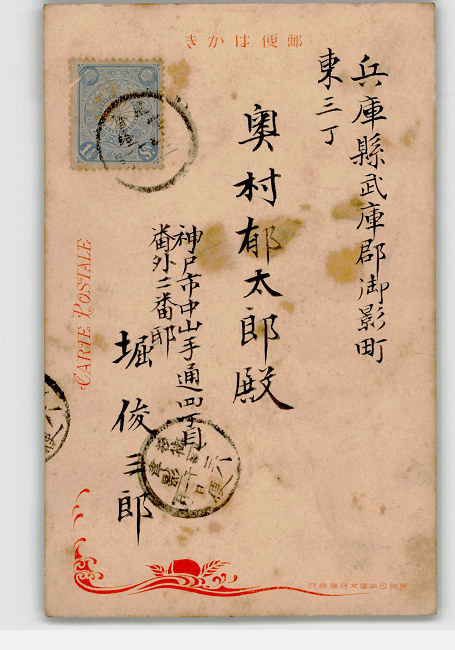 郵便はかき
兵庫縣武庫郡御影町
東三丁
奥村郁太郎殿
神戸市中山手通四丁目
番外二番邸
堀俊三郎
CARTE POSTALE